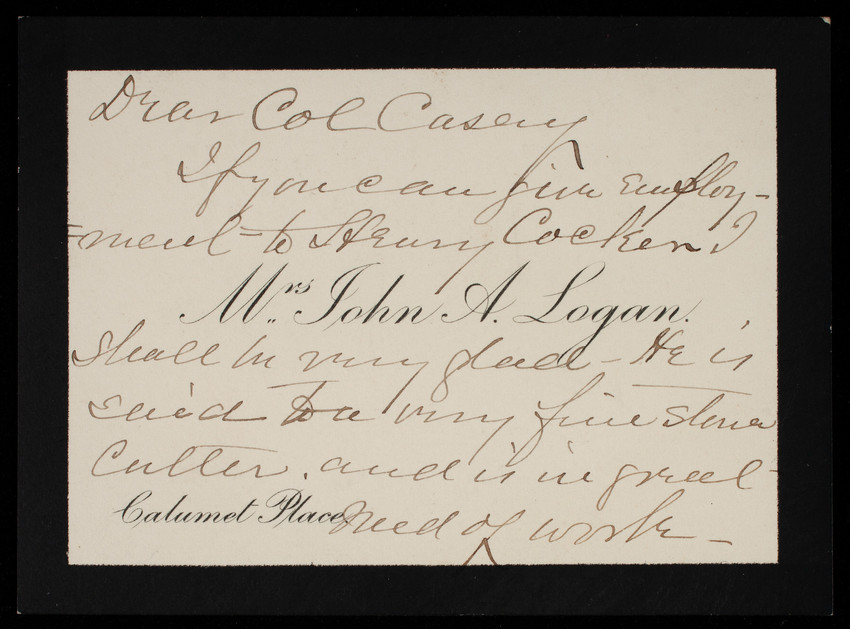 Dear Col Casey
If you can give employ-
=ment to Henry Cocken I
Mrs John A. Logan.
shall be very glad - He is
said to a very fine stone
Cutter. and is in great
Calumet Place need of work -